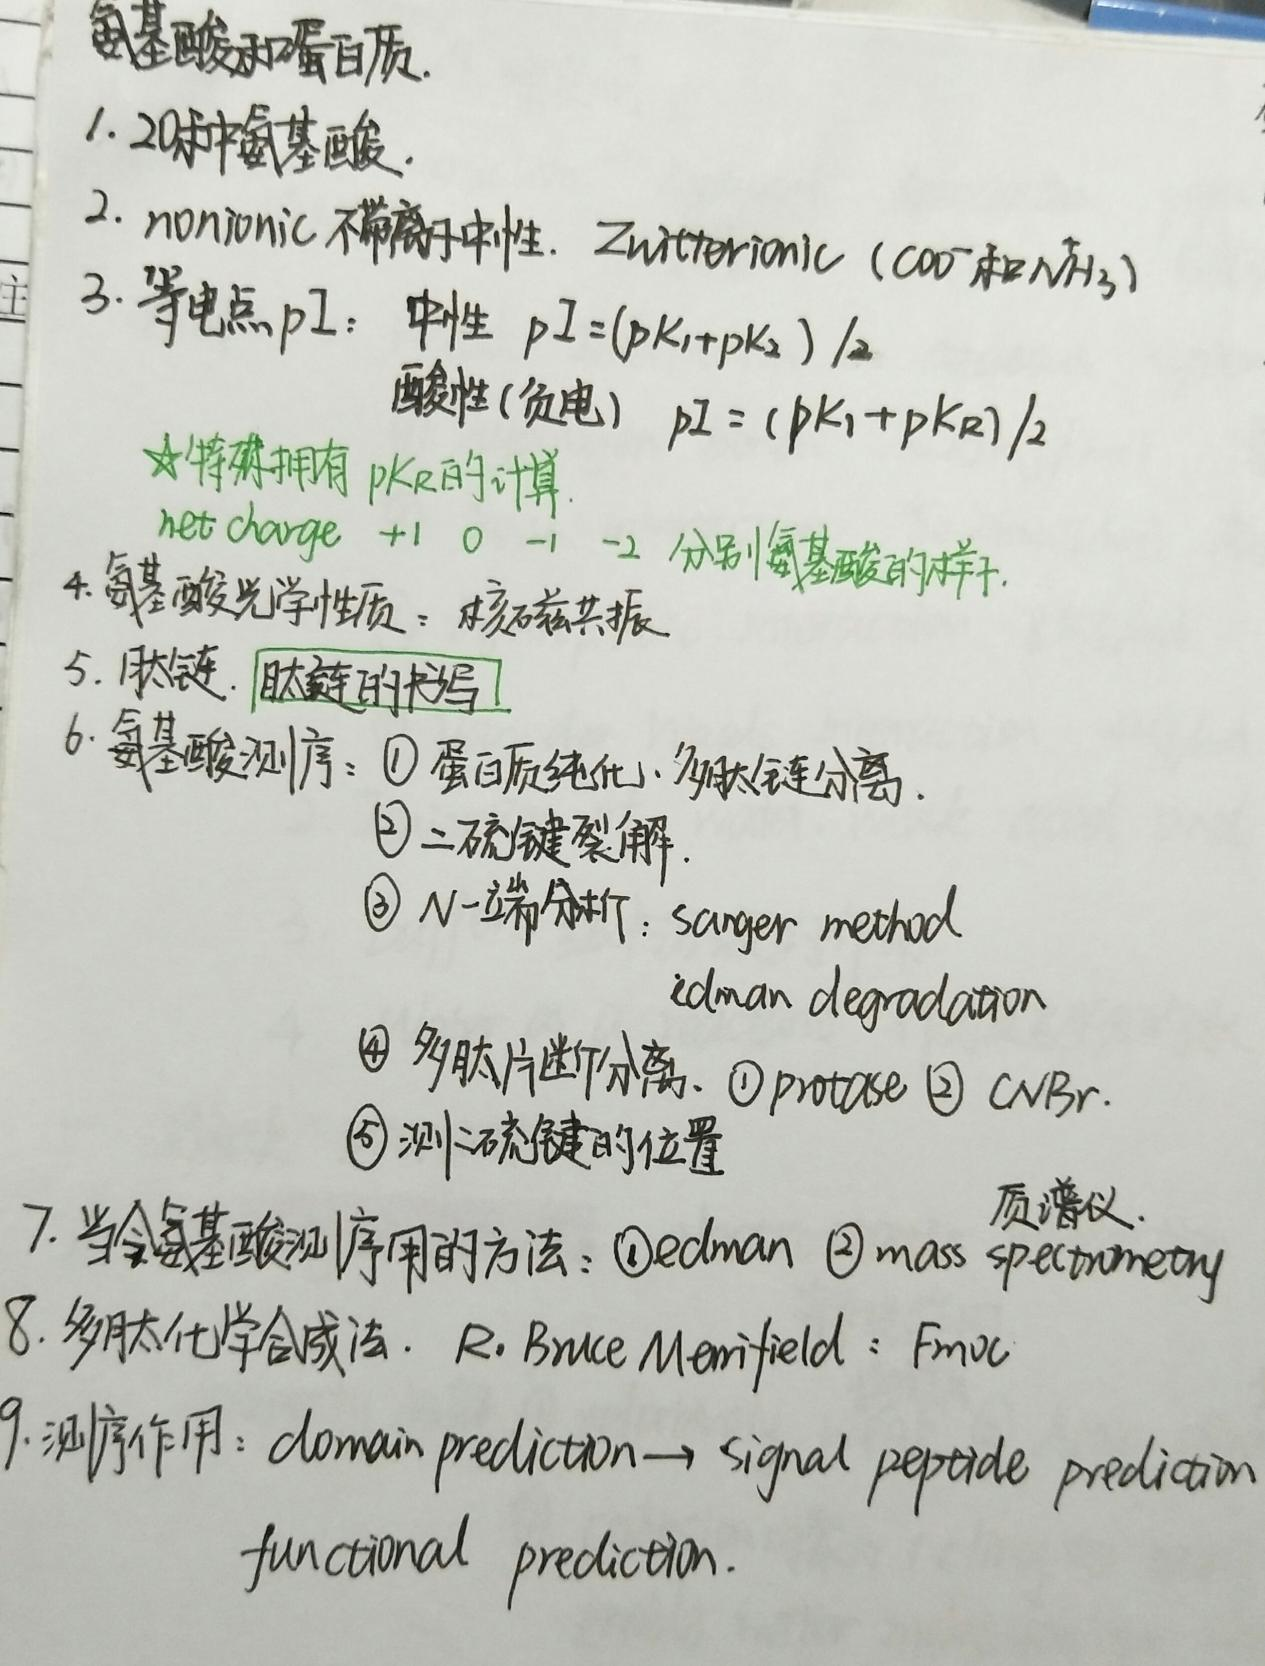 氨基酸和蛋白质.
1. 20种氨基酸.
2. nonionic 不带离子中性. Zwitterionic (COO⁻和N⁺H₃)
3. 等电点pI: 中性 pI=(pK₁+pK₂)/2
酸性(负电) pI=(pK₁+pKR)/2
☆特殊拥有pKR的计算.
net charge +1 0 -1 -2 分别氨基酸的样子.
4. 氨基酸光学性质: 核磁共振
5. 肽链. 肽链的书写
6. 氨基酸测序: ① 蛋白质纯化、多肽链分离.
② 二硫键裂解.
③ N-端分析: sanger method
edman degradation
④ 多肽片断分离. ①protase ② CNBr.
⑤ 测二硫键的位置
质谱仪.
7. 当今氨基酸测序用的方法: ①edman ② mass spectrometry
8. 多肽化学合成法. R. Bruce Merrifield: Fmoc
9. 测序作用: domain prediction → signal peptide prediction
functional prediction.